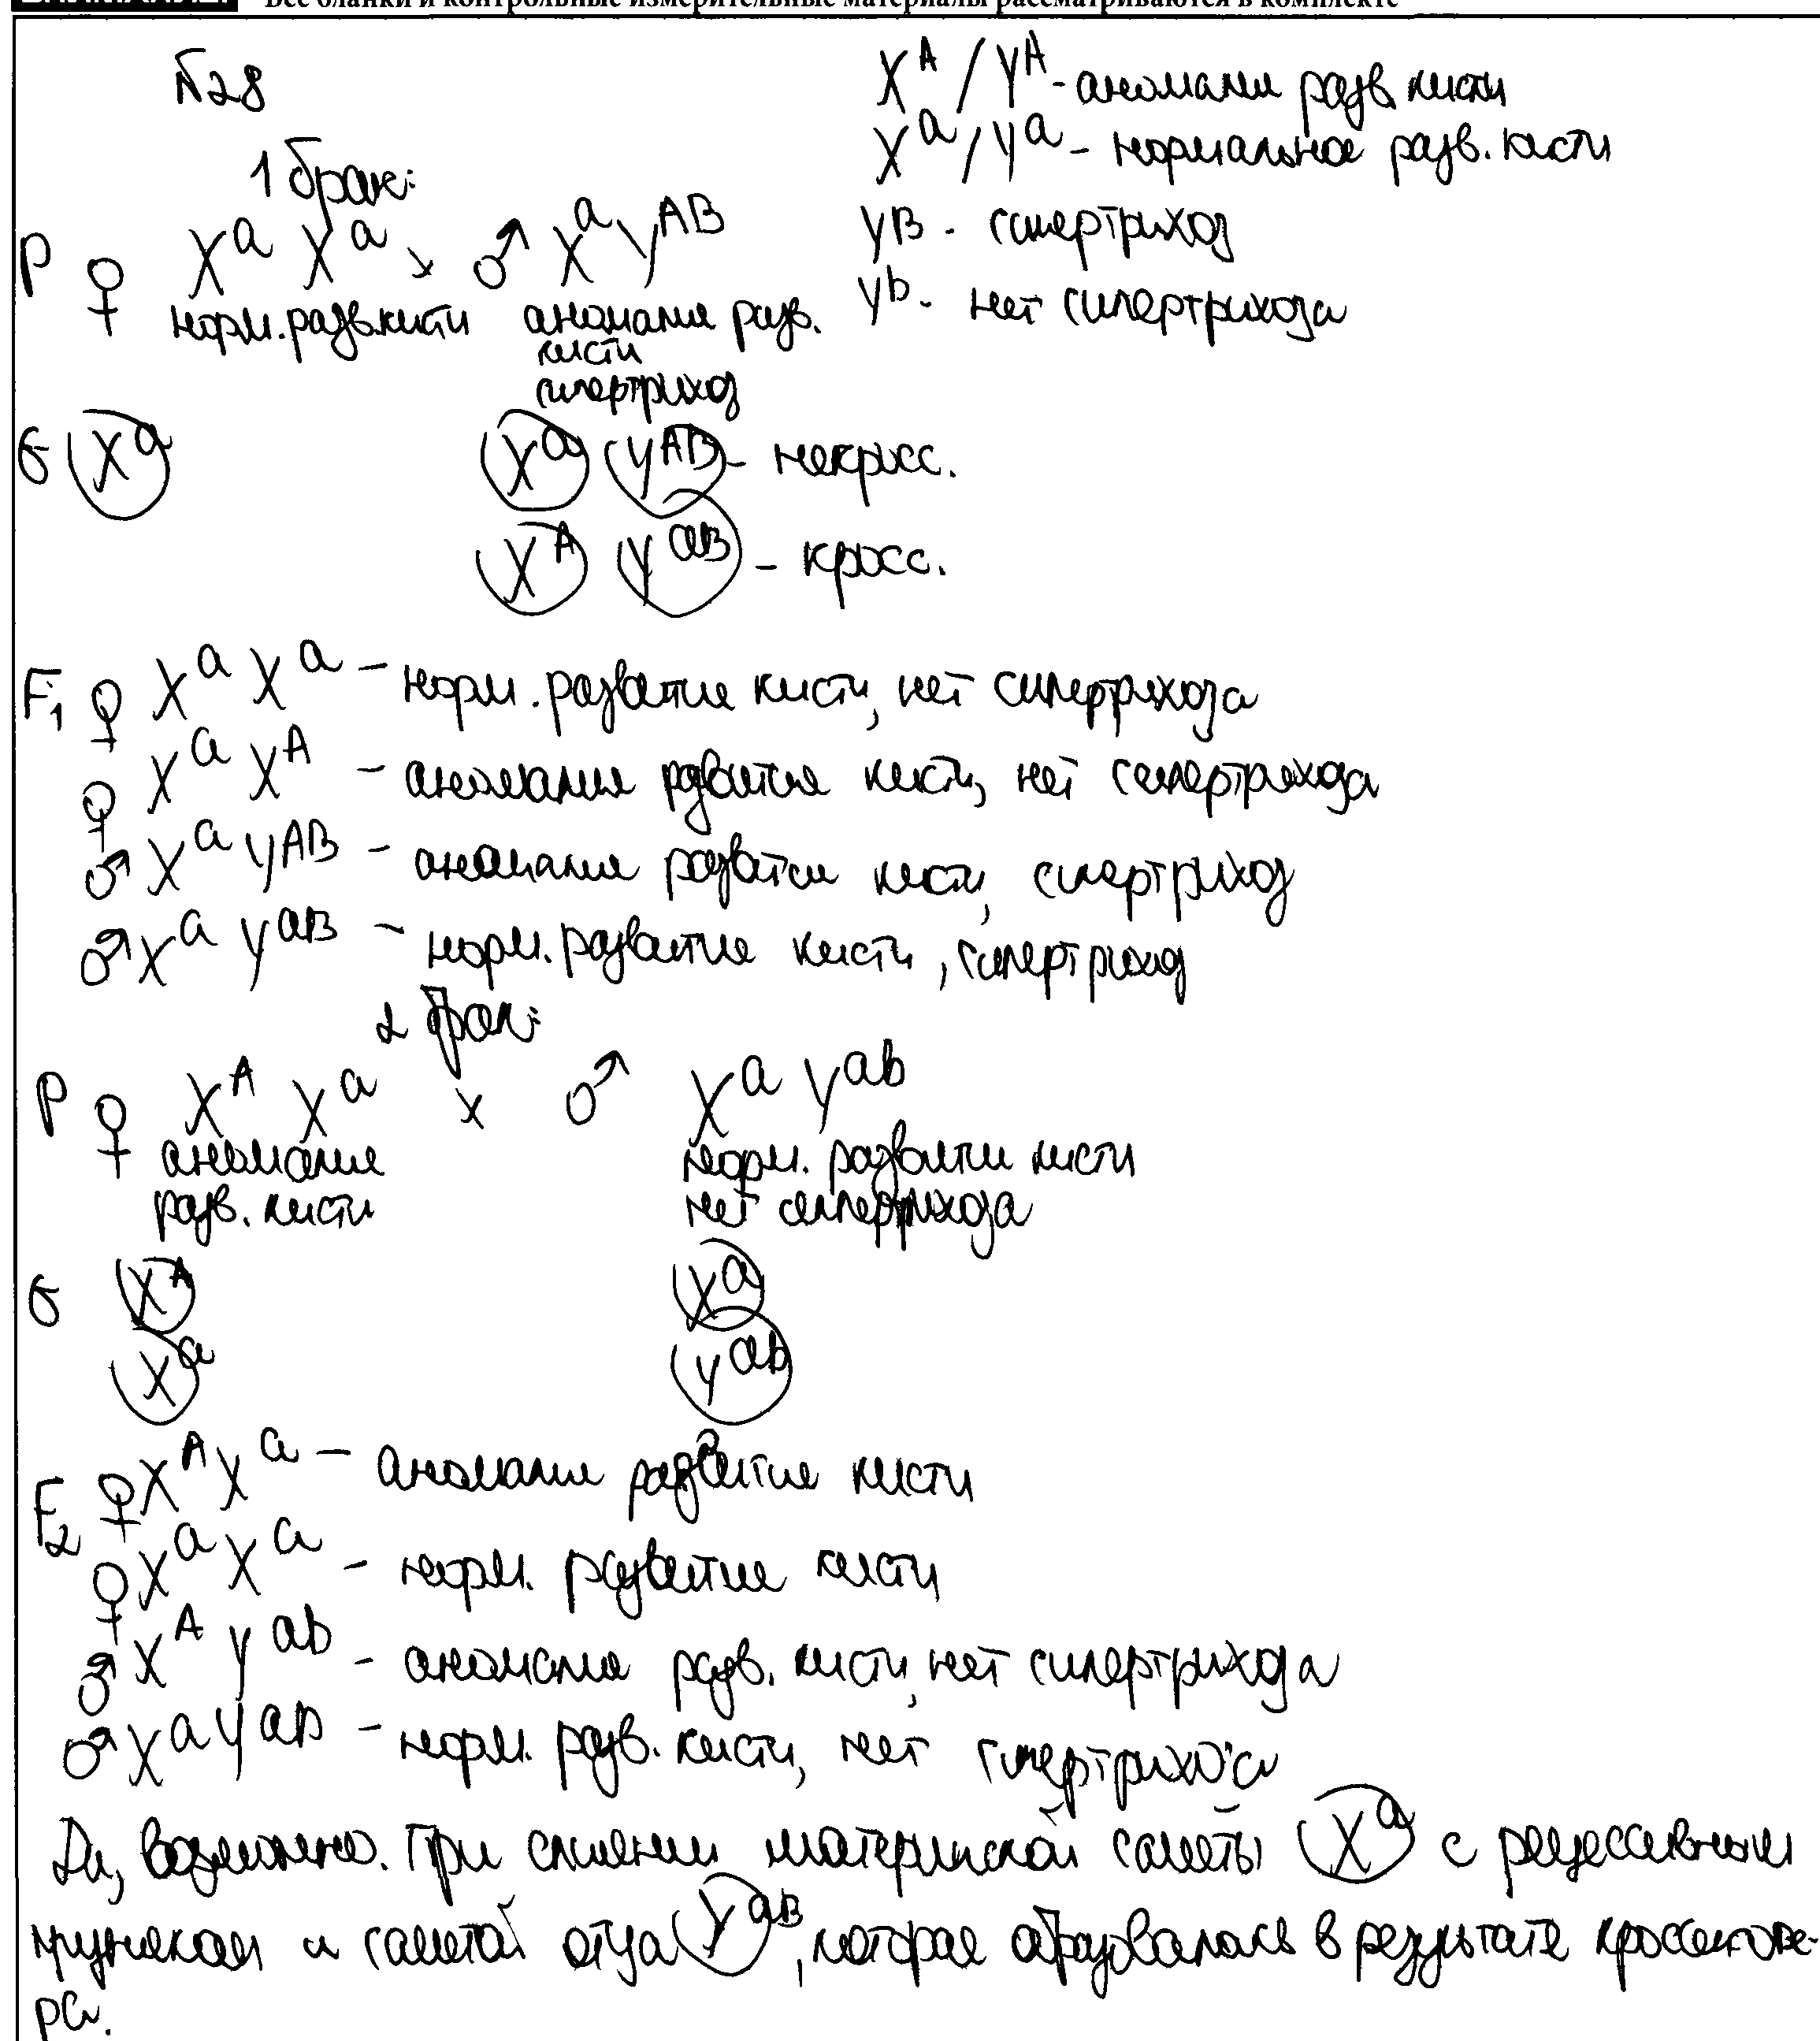 Все бланки и контрольные измерительные материалы рассматриваются в комплекте
№28
X^A / Y^A - аномалия разв. кисти
X^a / Y^a - нормальное разв. кисти
Y^B - гипертрихоз
Y^b - нет гипертрихоза
1 брак:
P ♀ X^a X^a x ♂ X^a Y^AB
норм. разв. кисти аномалия разв.
кисти
гипертрихоз
G X^a X^a Y^AB - некросс.
X^A Y^aB - кросс.
F1 ♀ X^a X^a - норм. развитие кисти, нет гипертрихоза
♀ X^a X^A - аномалия развития кисти, нет гипертрихоза
♂ X^a Y^AB - аномалия развития кисти, гипертрихоз
♂ X^a Y^aB - норм. развитие кисти, гипертрихоз
2 брак:
P ♀ X^A X^a x ♂ X^a Y^ab
аномалия норм. развитие кисти
разв. кисти нет гипертрихоза
G X^A X^a
X^a Y^ab
F2 ♀ X^A X^a - аномалия развития кисти
♀ X^a X^a - норм. развитие кисти
♂ X^A Y^ab - аномалия разв. кисти, нет гипертрихоза
♂ X^a Y^ab - норм. разв. кисти, нет гипертрихоза
Да, возможно. При слиянии материнской гаметы X^a с рецессивным
признаком и гаметой отца Y^aB, которая образовалась в результате кроссинове-
ра.